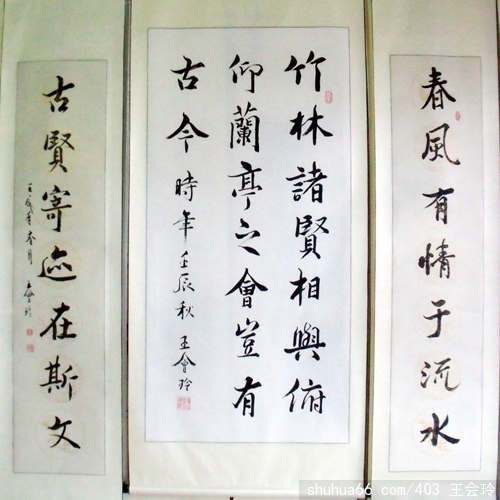 春風有情于流水
竹林諸賢相與俯
仰蘭亭之會豈有
古今時年壬辰秋 王會玲
古賢寄迹在斯文
shuhua66.com/403 王会玲